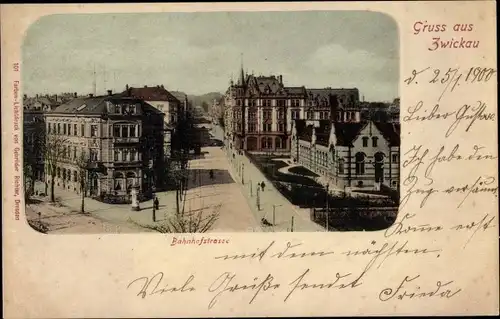 Gruss aus
Zwickau
d 25/1 1900
Lieber Gustav
Ich habe den
Zug versäumt
Komme erst
mit dem nächsten.
Viele Grüße sendet Frieda
Bahnhofstrasse
101 Farben-Lichtdruck von Gebrüder Richter, Dresden